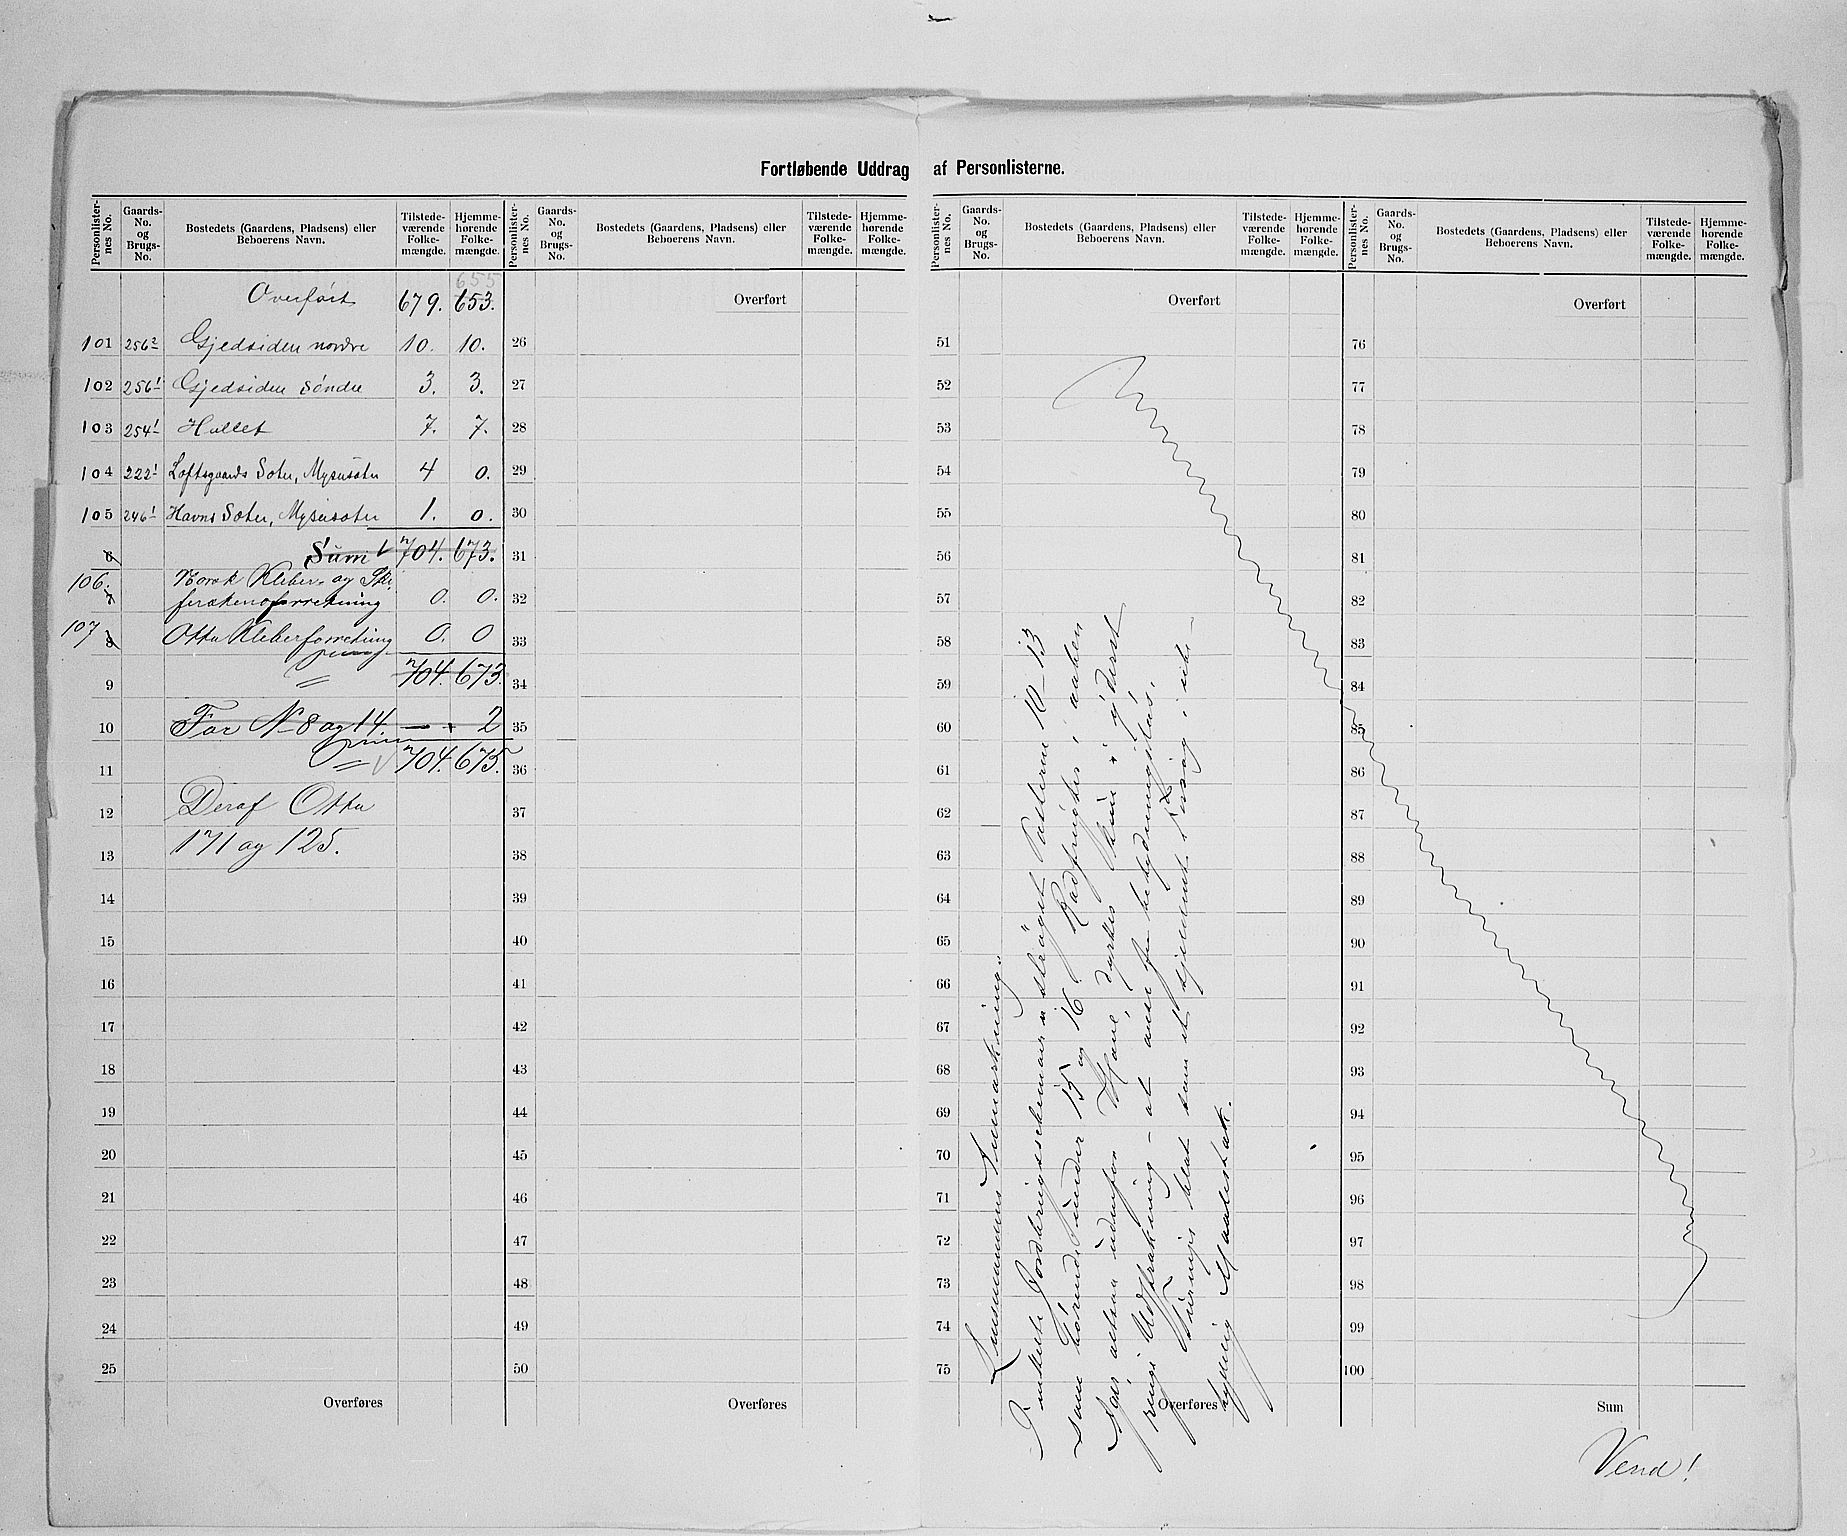 Fortløbende Uddrag af Personlisterne.
Personlister-nes No. Gaards-No. og Brugs-No. Bostedets (Gaardens, Pladsens) eller Beboerens Navn. Tilstede-værende Folke-mængde. Hjemme-hørende Folke-mængde.
655
Overført 679. 653.
101 256² Gjedsiden nordre 10. 10.
102 256¹ Gjedsiden søndre 3. 3.
103 254¹ Hullet 7. 7.
104 222¹ Loftsgaards Sæter, Mysusæter 4 0.
105 246¹ Havns Sæter, Mysusæter 1. 0.
6 Sum 704. 673.
106. Norsk Kleber- og Ski-
7 ferskenoforretning 0. 0.
107 8 Otta Kleberforretning 0. 0
9 Sum 704. 673.
10 For N 8 og 14. — + 2
11 Sum 704. 675.
12 Deraf Otta
13 171 og 125.
14
15
16
17
18
19
20
21
22
23
24
25
Overføres
Personlister-nes No. Gaards-No. og Brugs-No. Bostedets (Gaardens, Pladsens) eller Beboerens Navn. Tilstede-værende Folke-mængde. Hjemme-hørende Folke-mængde.
Overført
26
27
28
29
30
31
32
33
34
35
36
37
38
39
40
41
42
43
44
45
46
47
48
49
50
Overføres
Personlister-nes No. Gaards-No. og Brugs-No. Bostedets (Gaardens, Pladsens) eller Beboerens Navn. Tilstede-værende Folke-mængde. Hjemme-hørende Folke-mængde.
Overført
51
52
53
54
55
56
57
58
59
60
61
62
63
64
65
66
67
68
69
70
71
72
73
74
75
Overføres
Lensmandens Anmærkning.
I enkelte Jordbrugsskemaer er strøget Posterne 10–13
som hørende under 15 og 16. Rodfrugter i aaben
Ager altsaa udenfor Have, dyrkes kun i yderst
ringe Udstrækning – at anse for betydningsløs.
Turnips blot som et sjeldent Forsøg i ube-
tydelig Maalestok.
Personlister-nes No. Gaards-No. og Brugs-No. Bostedets (Gaardens, Pladsens) eller Beboerens Navn. Tilstede-værende Folke-mængde. Hjemme-hørende Folke-mængde.
Overført
76
77
78
79
80
81
82
83
84
85
86
87
88
89
90
91
92
93
94
95
96
97
98
99
100
Sum
Vend!